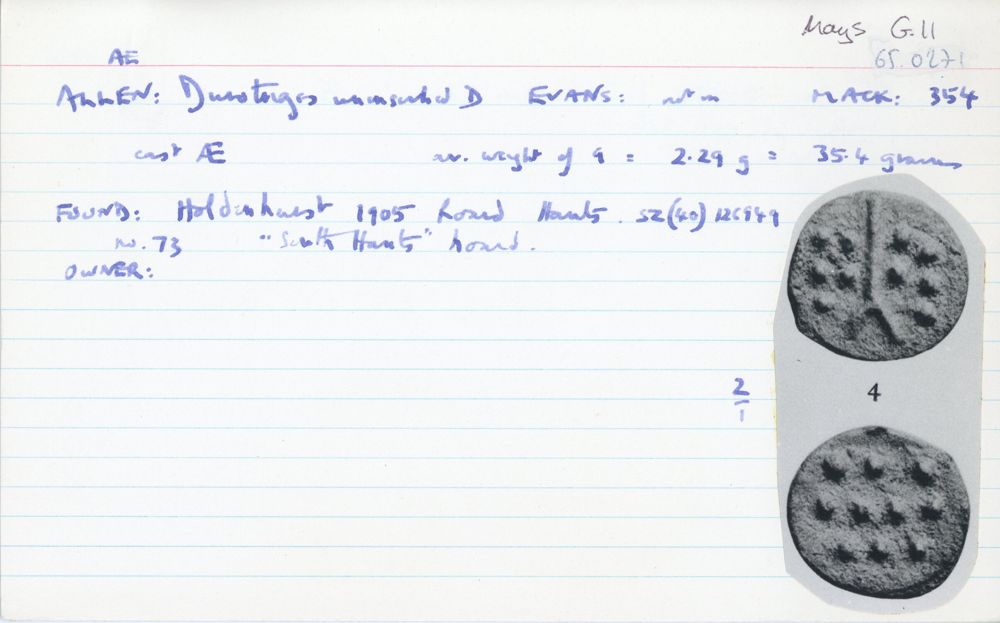 Mays G.11
65.0271
Æ
ALLEN: Durotriges uninscribed D EVANS: not in MACK: 354
cast Æ av. weight of 9 = 2.29 g = 35.4 grams
FOUND: Holdenhurst 1905 hoard Hants. SZ(40)
no. 73 "South Hants" hoard.
OWNER:
2
1
4